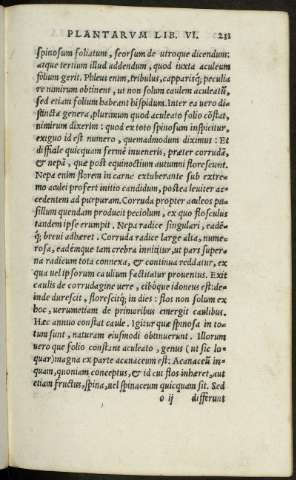 PLANTARVM LIB. VI. 231
spinosum foliatum, seorsum de utroque dicendum:
atque tertium illud addendum, quod iuxta aculeum
folium gerit. Phleus enim, tribulus, capparisq; peculia
re nimirum obtinent, ut non solum caulem aculeatū,
sed etiam folium habeant hispidum. Inter ea uero di-
stincta genera, plurimum quod aculeato folio cōstat,
nimirum dixerim: quod ex toto spinosum inspicitur,
exiguo id est numero, quemadmodum diximus: Et
diffusile quicquam fermè inueneris, præter corrudā,
& nepā, que post equinoctium autumni florescunt.
Nepa enim florem in carne extuberante sub extre-
mo aculei profert initio candidum, postea leuiter ac-
cedentem ad purpuram. Corruda propter aculeos pu-
sillum quendam producit peciolum, ex quo flosculus
tandem ipse erumpit. Nepa radice singulari, eadē-
q; breui adheret. Corruda radice larga alta, nume-
rosa, eademque tam crebra innititur, ut pars superi-
na radicum tota connexa, & continua reddatur, ex
qua uel ipsorum caulium factitatur prouentus. Exit
caulis de corrudagine uere, ciboque idoneus est: de-
inde durescit, florescitq; in dies: flos non solum ex
hoc, uerumetiam de primoribus emergit caulibus.
Hæc annuio constat caule. Igitur quæ spinosa in to-
tum sunt, naturam eiusmodi obtinuerunt. Illorum
uero que folio constant aculeato, genus (ut sic lo
quar) magna ex parte acanaceum est: Acanaceū in-
quam, quoniam conceptus, & id cui flos inhæret, aut
etiam fructus, spina, uel spinaceum quicquam sit. Sed
o ij differunt